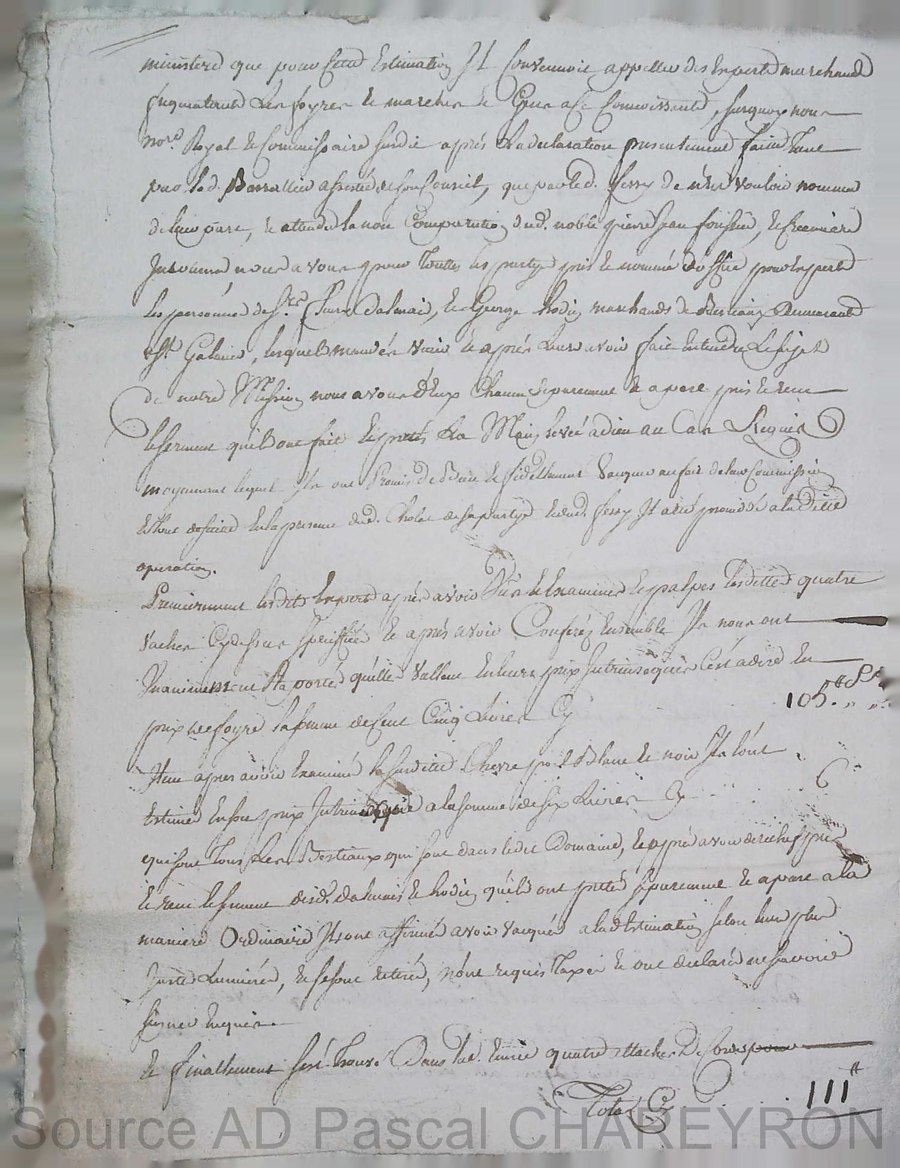 ministere que pour cette Estimation Il Convenoit appeller des Experts marchands
frequentants Les foyres et marchés et Gens a ce Connoissants, surquoy nous
no.re Royal et Commissaire susdit après La declaration presentement faitte
par led. assisté de son Conseil, que par led. ferry de ne vouloir nommer
de leur part, et attendu la non Comparution dud. noble pierre Jean
nous avons pour touttes les partyes pris et nommé d'office pour experts
les personnes de S.r Dalmais, et George Hodin marchands de Bestiaux Demeurants
a S.t Galmier, lesquels mandés venir et après Leur avoir fait Entendre Le sujet
de notre Mission nous avons d'Eux Chacun separement et a part pris et receu
le serment qu'ils ont fait et preté La Main levée a dieu au Cas Requis
moyennant lequel Ils ont Promis de Bien et fidellement Vacquer au fait de leur Commission
Et tout de suitte En la presence dud. et dud. ferry Il a été procédé a la ditte
operation.
Premierement lesdits Experts après avoir Vû et Examiné et palpés lesdittes quatre
vaches Cy dessus specifiées et après avoir Conferéz Ensemble Ils nous ont
Unanimement Raporté qu'elles Vallent En leurs prix Intrinseques C'est a dire En
prix de foyre la somme de Cent Cinq Livres Cy 105.#
Item apres avoir Examiné la susditte Chevre poil Blanc et noir Ils l'ont
Estimée En son prix Intrinseque a la somme de six Livres Cy 6
qui sont Tous Les Bestiaux qui sont dans ledit Domaine, et après avoir derechef pris
et receu le serment desd. dalmais et hodin qu'ils ont preté separement et a part a la
maniere Ordinaire Ils ont affirmé avoir Vacqués a lad. Estimation selon leur plus
Juste Lumieres, et se sont retirés, n'ont requis Taxe et ont declaré ne sçavoir
signer Enquis.
Et finallement s'est Trouvé Dans lad. Ecurie quatre attaches De
Total Cy 111#
Source AD Pascal CHAREYRON